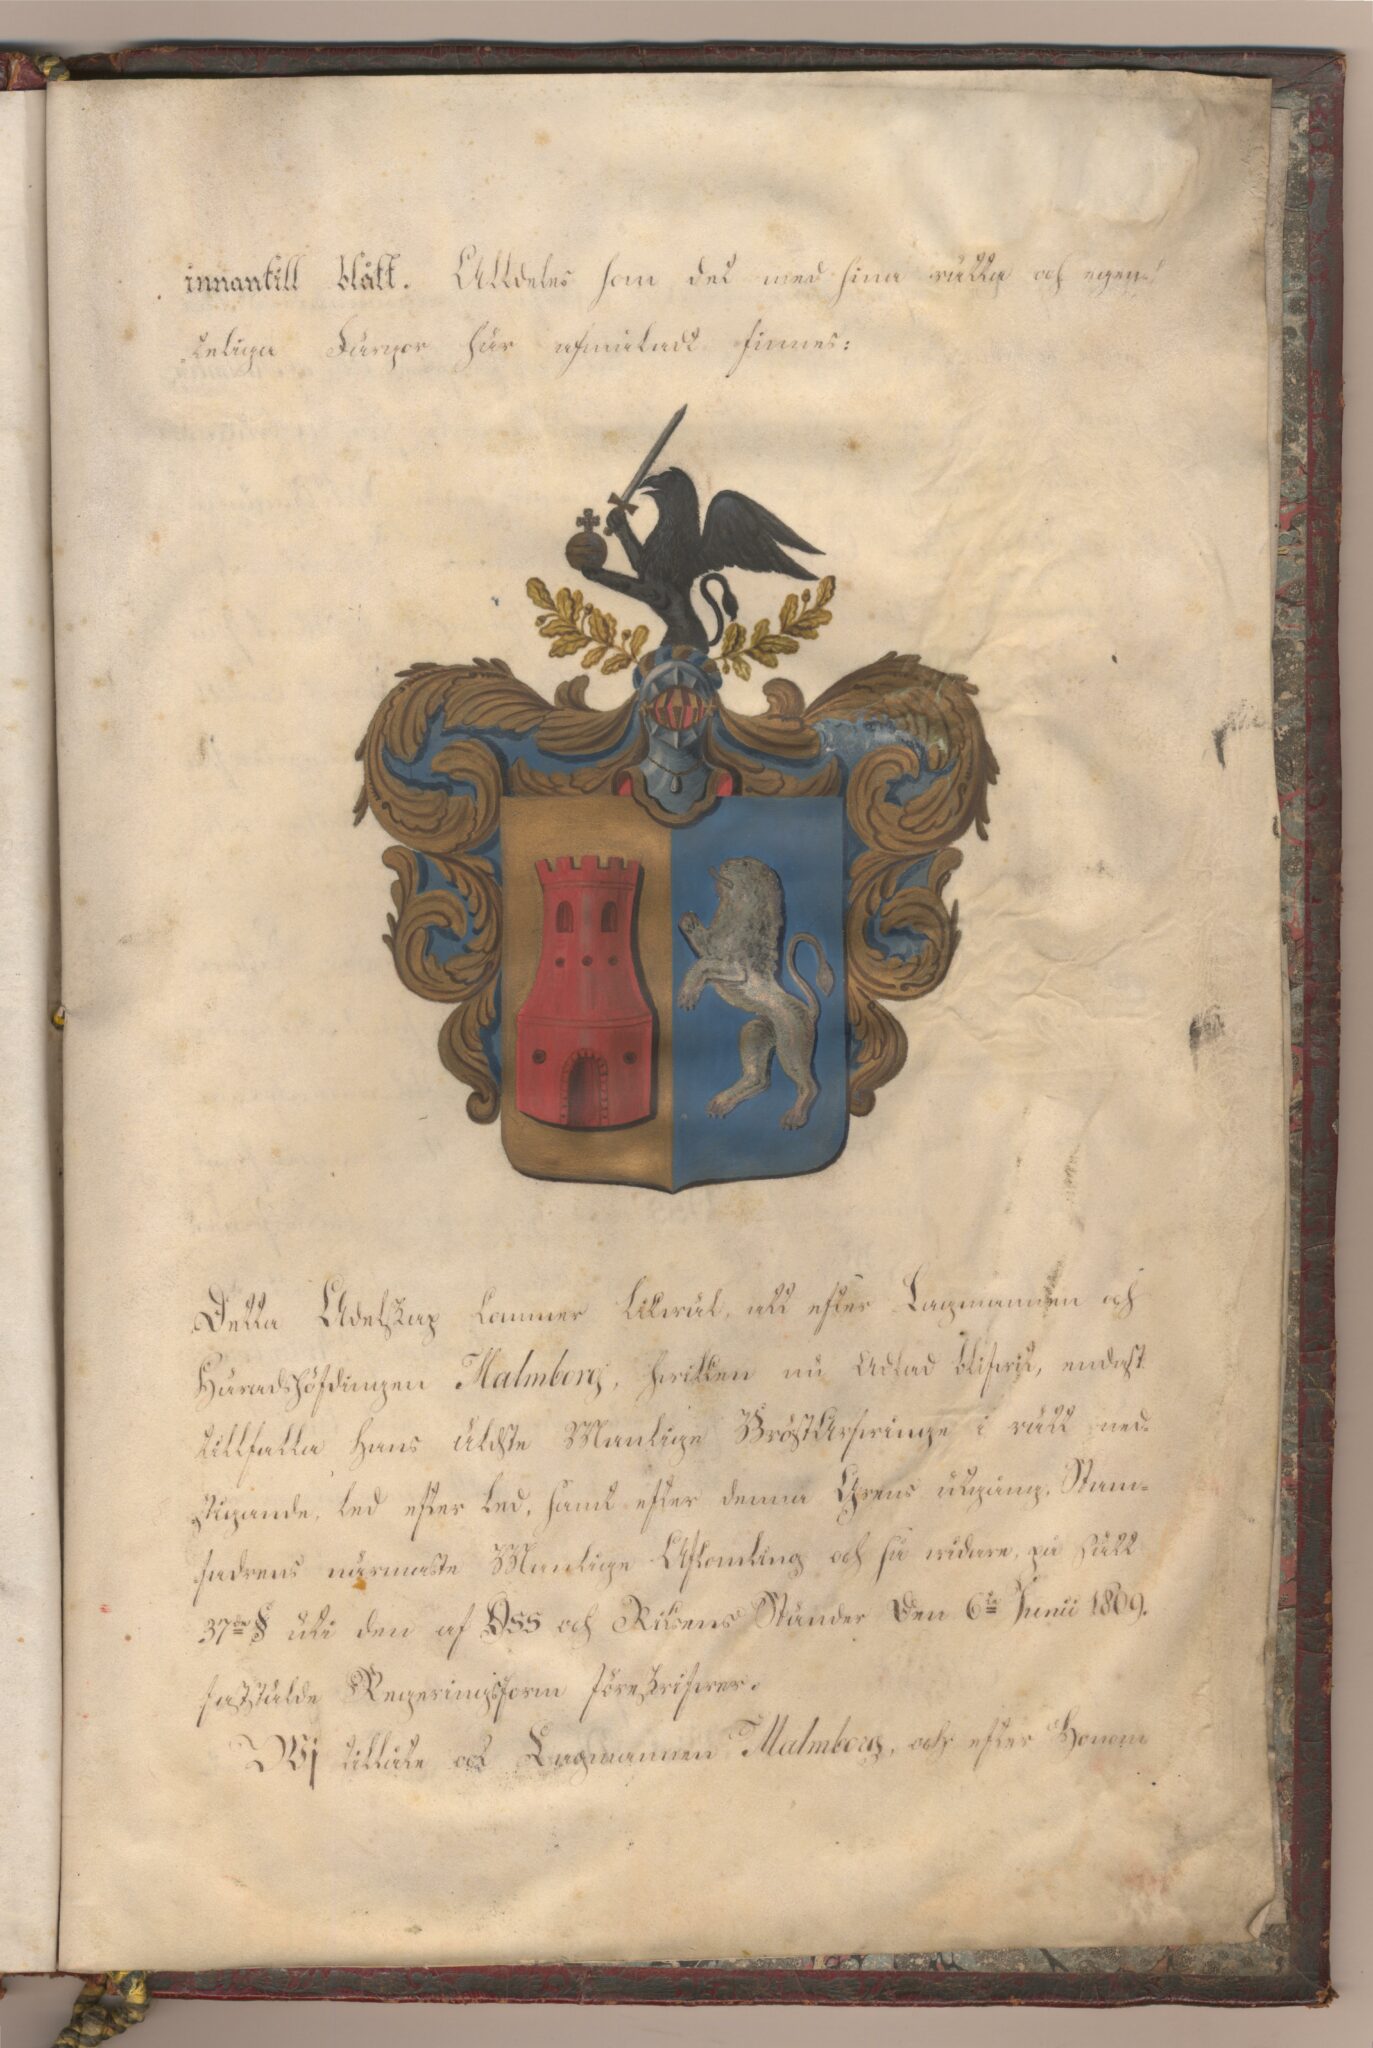 innantill blått. Alldeles som det med sina rätta och egen-
teliga Färgor här afmåladt finnes:
Detta Adelskap kommer likwäl, att efter Lagmannen och
Häradshöfdingen Malmborg, hwilken nu Adlad blifwit, endast
tillfalla Hans äldste Manlige Bröst Arfwinge i rätt ned-
stigande led efter led, samt efter denna Grens utgång, Stam-
fadrens närmaste Manlige Afkomling och så widare, på sätt
37de § uti den af Oss och Riksens Ständer Den 6te Junii 1809.
fastställde Regeringsform föreskrifwer.
Wij tillåte ock Lagmannen Malmborg, och efter Honom